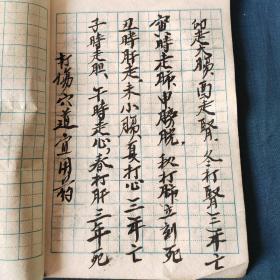 打傷穴道宜用药
子時走胆、午時走心、春打肝三年死
丑時肝走、未小腸、夏打心三年亡
寅時走肺、申膀胱、秋打肺立刻死
卯走大腸、酉走腎、冬打腎三年亡